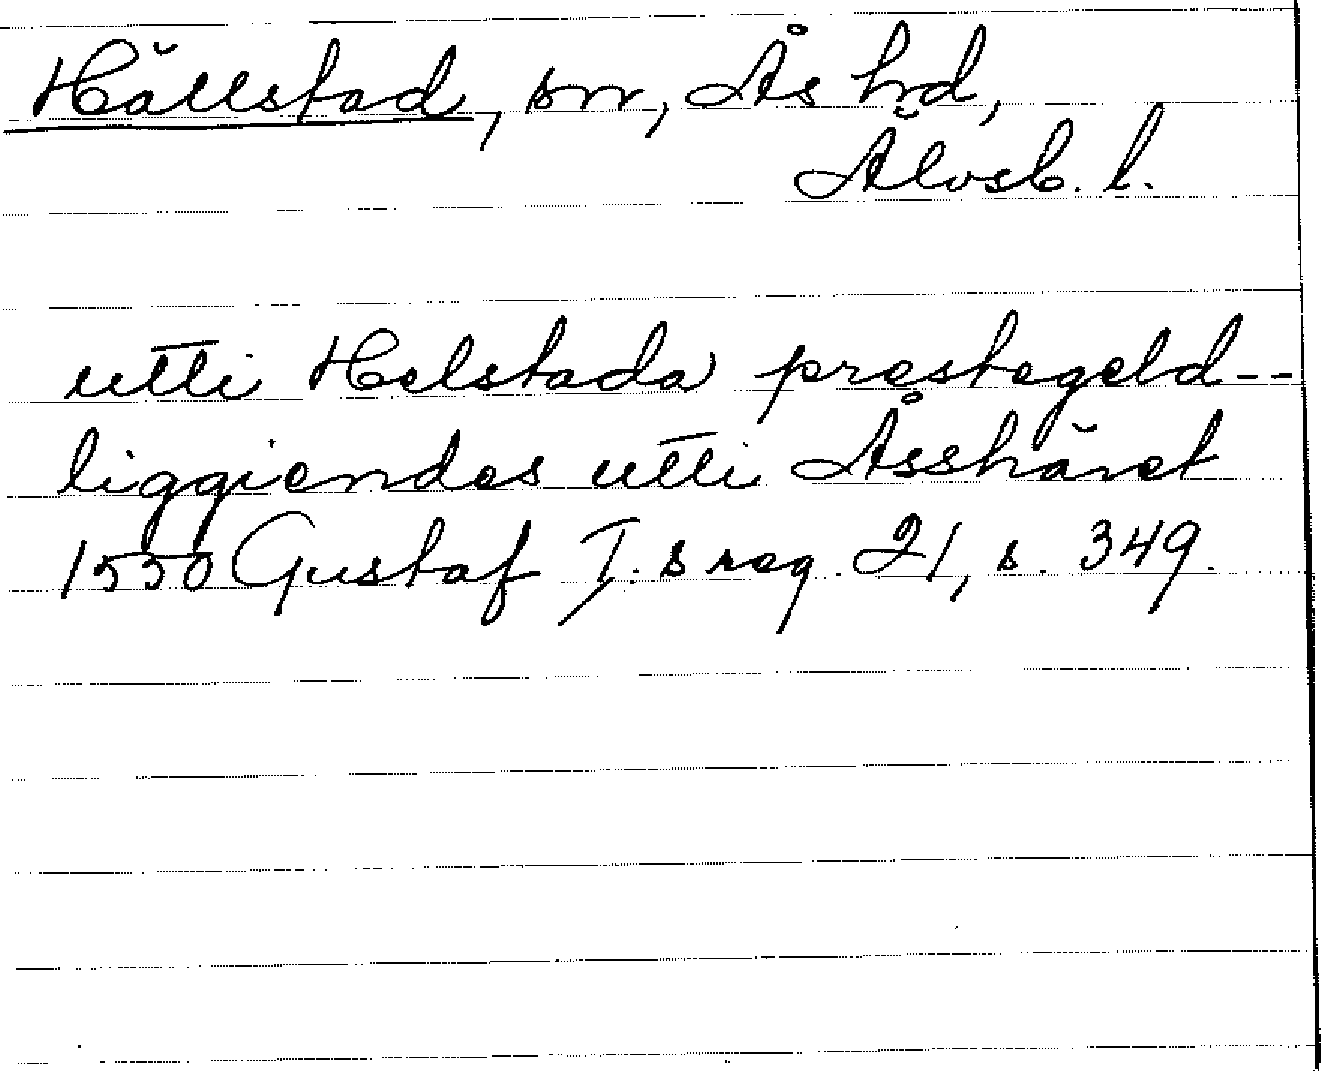 Hällstad, sn, Ås hd,
Älvsb. l.
utti Helstada prestegeld--
liggiendes utti Åsshäret
1550 Gustaf I. s reg. 21, s. 349.